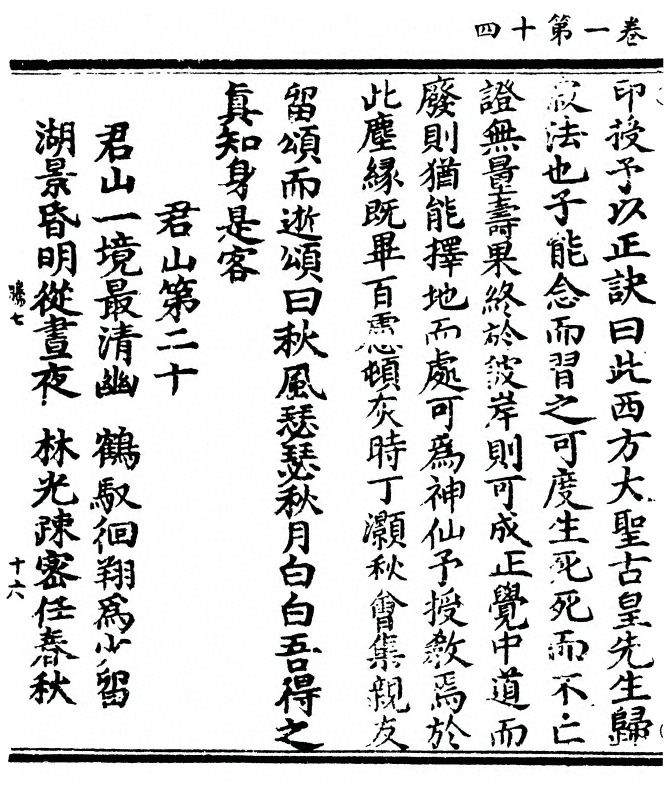 卷一第十四
印授予以正訣曰此西方大聖古皇先生歸
寂法也子能念而習之可度生死死而不亡
證無量壽果終於彼岸則可成正覺中道而
廢則猶能擇地而處可為神仙予授教焉於
此塵緣既畢百慮頓灰時丁灝秋會集親友
留頌而逝頌曰秋風瑟瑟秋月白白吾得之
真知身是客
君山第二十
君山一境最清幽　鶴馭徊翔為少留
湖景昏明從晝夜　林光疎密任春秋
騰七
十六